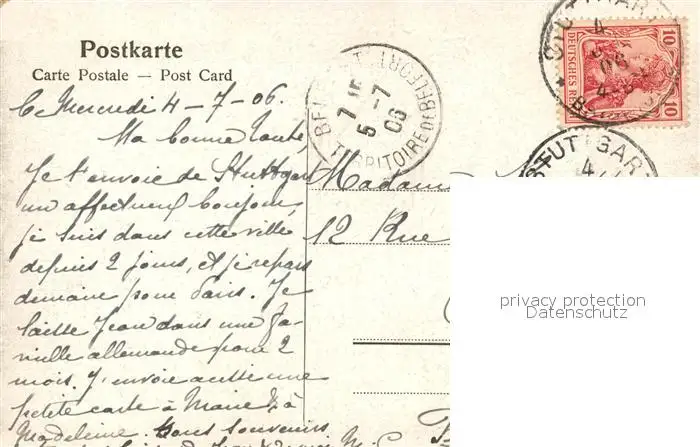 Postkarte
Carte Postale — Post Card
STUTTGART
4
06
10
10
DEUTSCHES REICH
BELFORT
7 15
5-7
06
TERRITOIRE DE BELFORT
STUTTGART
4
Ce Mercredi 4-7-06.
Ma bonne Tante,
Je t'envoie de Stuttgart
un affectueux bonjour,
je suis dans cette ville
depuis 2 jours, et je repars
demain pour Paris. Je
laisse Jean dans une fa-
mille allemande pour 2
mois. J'envoie aussi une
petite carte à Marie & à
Madeleine. Bons souvenirs
Madame
12 Rue
privacy protection
Datenschutz